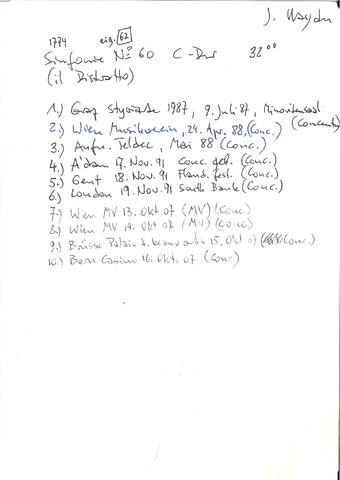 J. Haydn
1774 eig. 62
Sinfonie No 60 C-Dur 32°°
(il Distratto)
1.) Graz Styriarte 1987, 9. Juli 87, Minoritensaal
(Concentus)
2.) Wien Musikverein, 24. Apr. 88, (Conc.)
3.) Aufn. Teldec, Mai 88 (Conc.)
4.) A'dam 17. Nov. 91 Conc. geb. (Conc.)
5.) Gent 18. Nov. 91 Fland. fest. (Conc.)
6.) London 19. Nov. 91 South Bank (Conc.)
7.) Wien MV 13. Okt 07 (MV) (Conc)
8.) Wien MV 14. Okt 07 (MV) (Conc)
9.) Brüssel Palais d. beaux arts 15. Okt 07 (Conc.)
10.) Bern Casino 16. Okt. 07 (Conc)